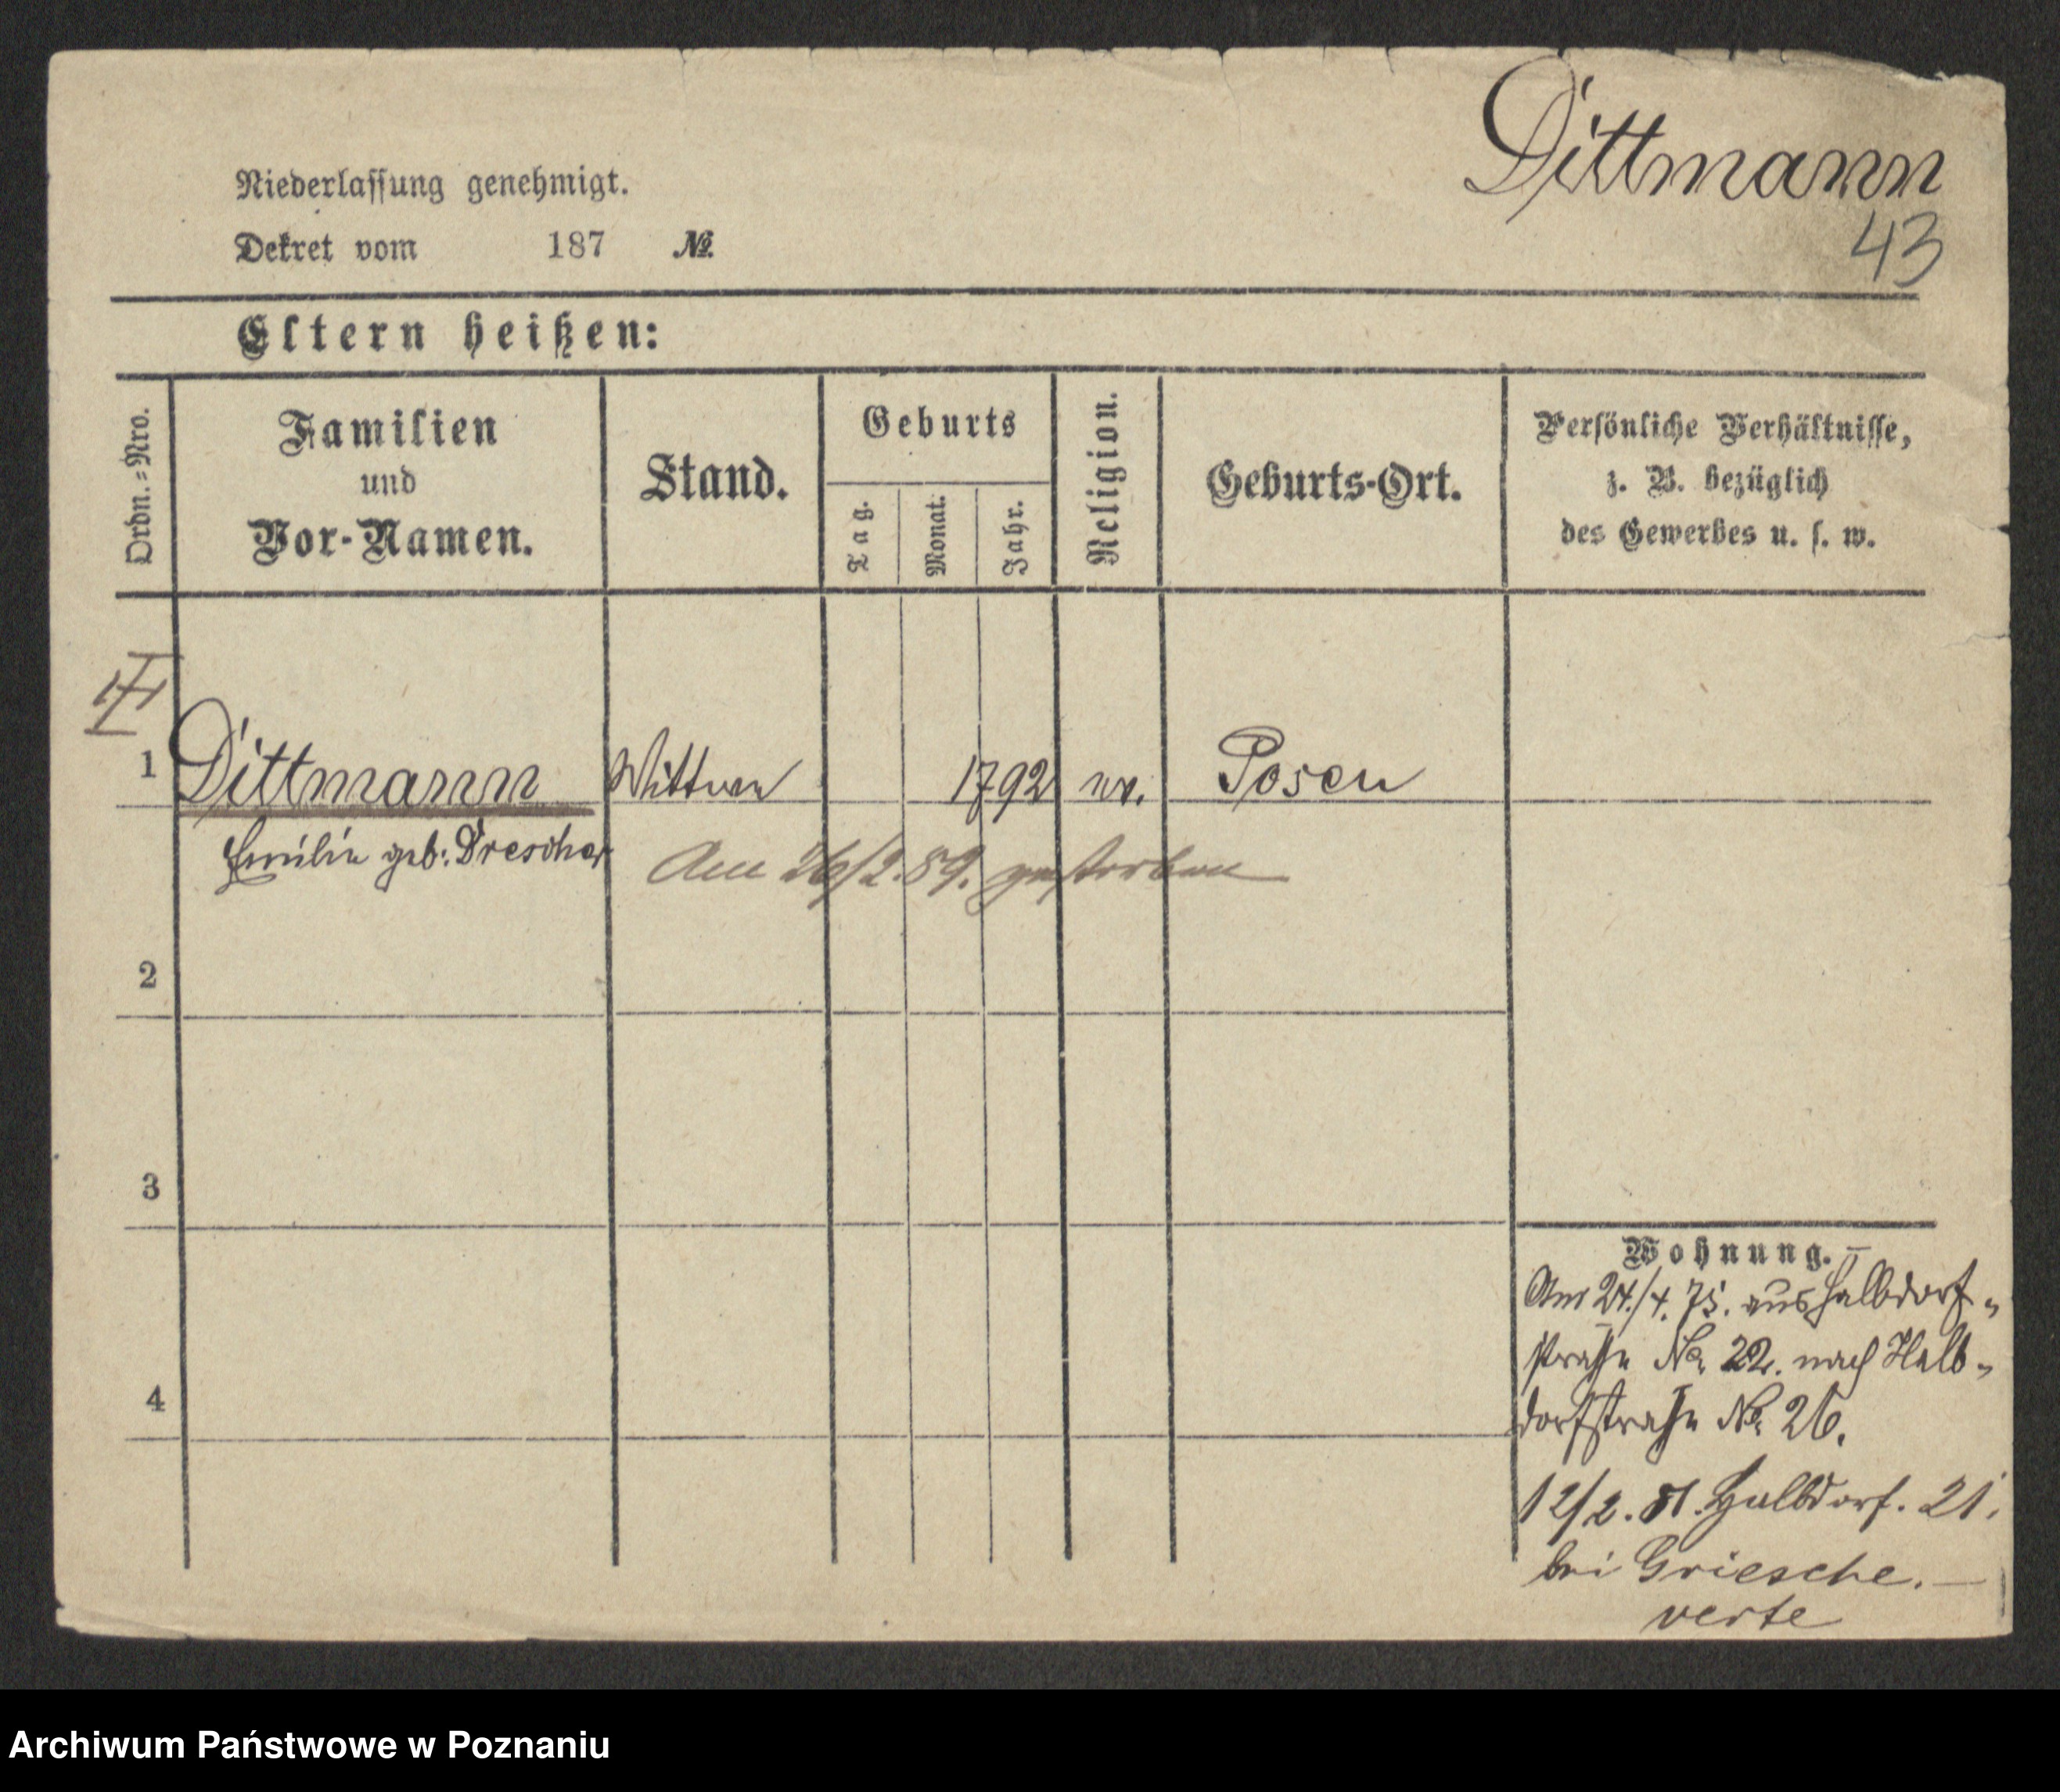 Dittmann
43
Niederlassung genehmigt.
Dekret vom 187 №
Eltern heißen:
Ordn.=Nro.
Familien
und
Vor-Namen.
Stand.
Geburts
Tag.
Monat.
Jahr.
Religion.
Geburts-Ort.
Persönliche Verhältnisse,
z. B. bezüglich
des Gewerbes u. s. w.
1 Dittmann Wittwe 1792 ev. Posen
Emilie geb: Drescher
Am 26/2.89. gestorben
2
3
4
Wohnung.
Am 24./4. 75. aus Halbdorf-
straße No. 22. nach Halb-
dorfstraße No. 26.
12/2. 81. Halbdorf. 21.
bei Griesche.
verte
Archiwum Państwowe w Poznaniu